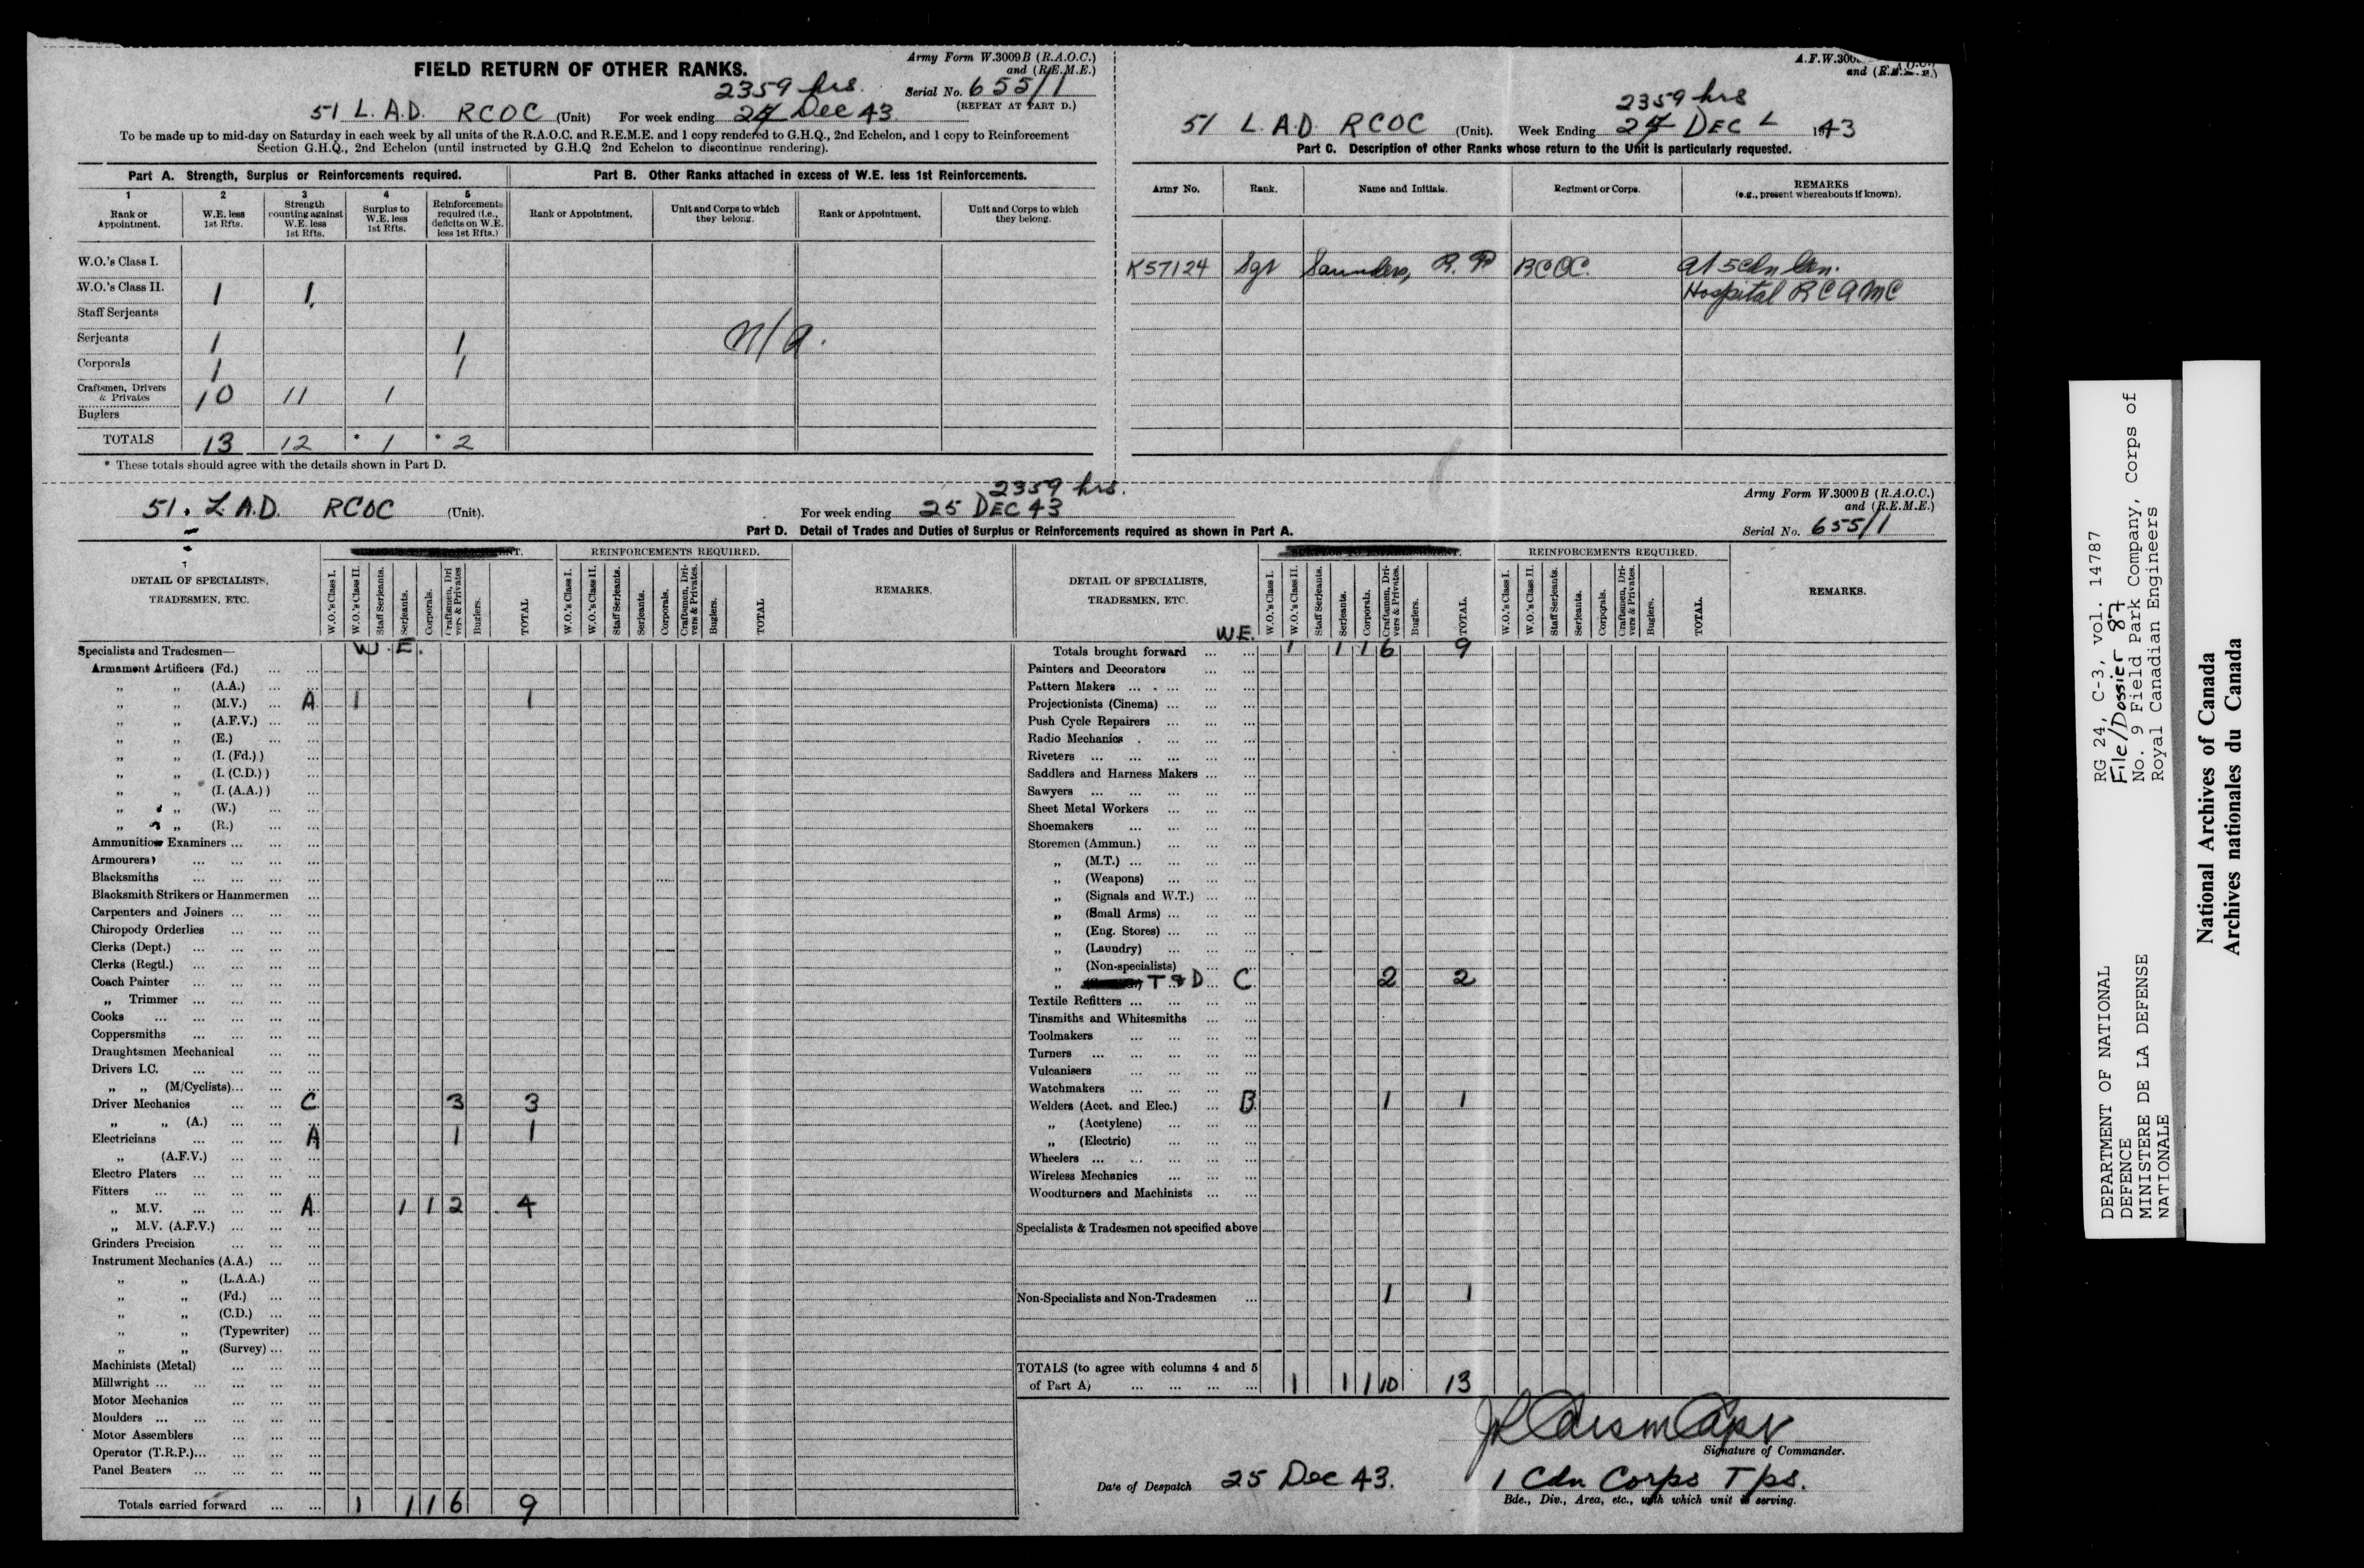 FIELD RETURN OF OTHER RANKS.
Army Form W.3009B (R.A.O.C.)
and (R.E.M.E.)
2359 hrs.
Serial No. 655/1
(REPEAT AT PART D.)
51 L.A.D. RCOC (Unit) For week ending Dec 43
To be made up to mid-day on Saturday in each week by all units of the R.A.O.C. and R.E.M.E. and 1 copy rendered to G.H.Q., 2nd Echelon, and 1 copy to Reinforcement
Section G.H.Q., 2nd Echelon (until instructed by G.H.Q 2nd Echelon to discontinue rendering).
Part A. Strength, Surplus or Reinforcements required.
1 2 3 4 5
Rank or Appointment. W.E. less 1st Rfts. Strength counting against W.E. less 1st Rfts. Surplus to W.E. less 1st Rfts. Reinforcements required (i.e., deficits on W.E. less 1st Rfts.)
W.O.'s Class I.
W.O.'s Class II. 1 1
Staff Serjeants
Serjeants 1 1
Corporals 1 1
Craftsmen, Drivers & Privates 10 11 1
Buglers
TOTALS 13 12 * 1 * 2
* These totals should agree with the details shown in Part D.
Part B. Other Ranks attached in excess of W.E. less 1st Reinforcements.
Rank or Appointment. Unit and Corps to which they belong. Rank or Appointment. Unit and Corps to which they belong.
N/A.
A.F.W.300
and (R.E.M.E.)
2359 hrs
51 L.A.D RCOC (Unit). Week Ending DEC 1943
Part C. Description of other Ranks whose return to the Unit is particularly requested.
Army No. Rank. Name and Initials. Regiment or Corps. REMARKS (e.g., present whereabouts if known).
K57124 Sgt Saunders, R. P RCOC. At 5 Cdn Gen.
Hospital RCAMC
2359 hrs.
51. L.A.D. RCOC (Unit). For week ending 25 DEC 43
Army Form W.3009B (R.A.O.C.)
and (R.E.M.E.)
Serial No. 655/1
Part D. Detail of Trades and Duties of Surplus or Reinforcements required as shown in Part A.
DETAIL OF SPECIALISTS, TRADESMEN, ETC.
REINFORCEMENTS REQUIRED.
REMARKS.
W.O.'s Class I. W.O.'s Class II. Staff Serjeants. Serjeants. Corporals. Craftsmen, Drivers & Privates Buglers. TOTAL
W.O.'s Class I. W.O.'s Class II. Staff Serjeants. Serjeants. Corporals. Craftsmen, Drivers & Privates. Buglers. TOTAL
Specialists and Tradesmen— W.E.
Armament Artificers (Fd.) ... ...
„ „ (A.A.) ... ...
„ „ (M.V.) ... A 1 1
„ „ (A.F.V.) ... ...
„ „ (E.) ... ...
„ „ (I. (Fd.) ) ...
„ „ (I. (C.D.) ) ...
„ „ (I. (A.A.) ) ...
„ „ (W.) ... ...
„ „ (R.) ... ...
Ammunition Examiners ... ... ...
Armourers ... ... ... ...
Blacksmiths ... ... ... ...
Blacksmith Strikers or Hammermen ...
Carpenters and Joiners ... ... ...
Chiropody Orderlies ... ... ...
Clerks (Dept.) ... ... ... ...
Clerks (Regtl.) ... ... ... ...
Coach Painter ... ... ... ...
„ Trimmer ... ... ... ...
Cooks ... ... ... ... ...
Coppersmiths ... ... ... ...
Draughtsmen Mechanical ... ...
Drivers I.C. ... ... ... ...
„ „ (M/Cyclists)... ... ...
Driver Mechanics ... ... C 3 3
„ „ (A.) ... ... ...
Electricians ... ... ... A 1 1
„ (A.F.V.) ... ... ...
Electro Platers ... ... ... ...
Fitters ... ... ... ... ...
„ M.V. ... ... ... A 1 1 2 4
„ M.V. (A.F.V.) ... ... ...
Grinders Precision ... ... ...
Instrument Mechanics (A.A.) ... ...
„ „ (L.A.A.) ...
„ „ (Fd.) ... ...
„ „ (C.D.) ... ...
„ „ (Typewriter) ...
„ „ (Survey) ... ...
Machinists (Metal) ... ... ...
Millwright ... ... ... ... ...
Motor Mechanics ... ... ...
Moulders ... ... ... ... ...
Motor Assemblers ... ... ...
Operator (T.R.P.)... ... ... ...
Panel Beaters ... ... ... ...
Totals carried forward ... ... 1 1 1 6 9
DETAIL OF SPECIALISTS, TRADESMEN, ETC.
REINFORCEMENTS REQUIRED.
REMARKS.
W.O.'s Class I. W.O.'s Class II. Staff Serjeants. Serjeants. Corporals. Craftsmen, Drivers & Privates. Buglers. TOTAL.
W.O.'s Class I. W.O.'s Class II. Staff Serjeants. Serjeants. Corporals. Craftsmen, Drivers & Privates. Buglers. TOTAL.
W.E.
Totals brought forward ... ... 1 1 1 6 9
Painters and Decorators ... ...
Pattern Makers ... ... ... ...
Projectionists (Cinema) ... ... ...
Push Cycle Repairers ... ... ...
Radio Mechanics ... ... ...
Riveters ... ... ... ... ...
Saddlers and Harness Makers ... ...
Sawyers ... ... ... ... ...
Sheet Metal Workers ... ... ...
Shoemakers ... ... ... ...
Storemen (Ammun.) ... ... ...
„ (M.T.) ... ... ... ...
„ (Weapons) ... ... ...
„ (Signals and W.T.) ... ...
„ (Small Arms) ... ... ...
„ (Eng. Stores) ... ... ...
„ (Laundry) ... ... ...
„ (Non-specialists) ... ...
„ T & D ... C 2 2
Textile Refitters ... ... ... ...
Tinsmiths and Whitesmiths ... ...
Toolmakers ... ... ... ...
Turners ... ... ... ... ...
Vulcanisers ... ... ... ...
Watchmakers ... ... ... ...
Welders (Acet. and Elec.) ... B 1 1
„ (Acetylene) ... ... ...
„ (Electric) ... ... ...
Wheelers ... ... ... ... ...
Wireless Mechanics ... ... ...
Woodturners and Machinists ... ...
Specialists & Tradesmen not specified above
Non-Specialists and Non-Tradesmen ... 1 1
TOTALS (to agree with columns 4 and 5
of Part A) ... ... ... ... 1 1 1 10 13
Capt
Signature of Commander.
Date of Despatch 25 Dec 43. 1 Cdn Corps Tps.
Bde., Div., Area, etc., with which unit is serving.
DEPARTMENT OF NATIONAL
DEFENCE
MINISTERE DE LA DEFENSE
NATIONALE
RG 24, C-3, vol. 14787
File/Dossier 87
No. 9 Field Park Company, Corps of
Royal Canadian Engineers
National Archives of Canada
Archives nationales du Canada